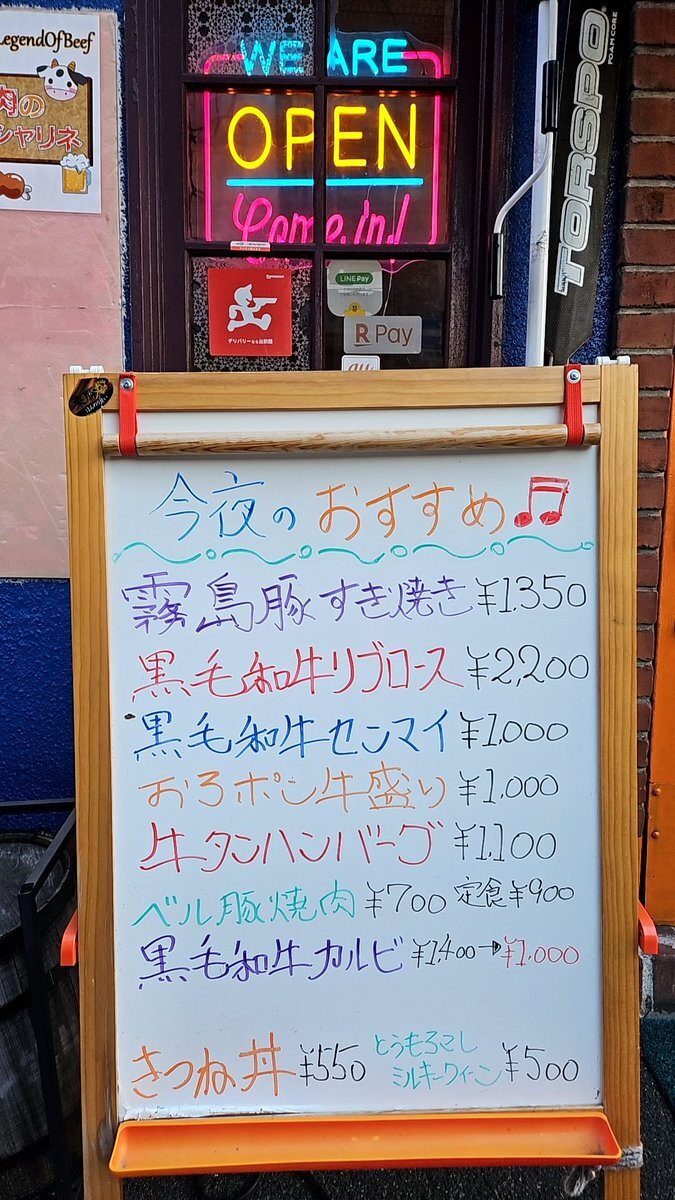 LegendOfBeef
肉の
シャリネ
WE ARE
OPEN
Come in!
TORSPO
FOAM CORE
デリバリーなら出前館
LINE Pay
R Pay
au
今夜のおすすめ♫
霧島豚すき焼き ¥1.350
黒毛和牛リブロース ¥2,200
黒毛和牛センマイ ¥1,000
おろポン牛盛り ¥1,000
牛タンハンバーグ ¥1,100
ベル豚焼肉 ¥700 定食¥900
黒毛和牛カルビ ¥1,400→¥1,000
きつね丼 ¥550
とうもろこし
ミルキークィーン ¥500